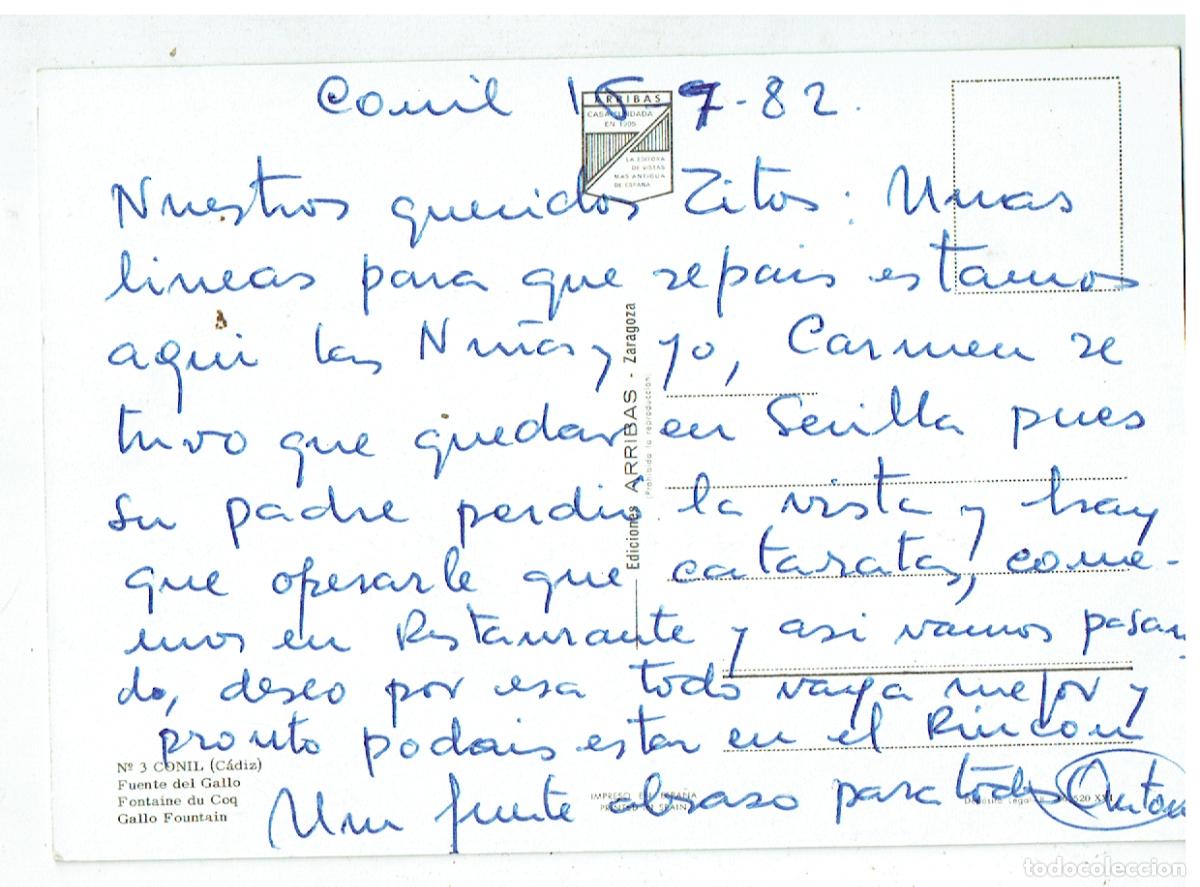 Conil 15-9-82.
ARRIBAS
CASA FUNDADA
EN 1905
LA EDITORA
DE VISTAS
MAS ANTIGUA
DE ESPAÑA
Nuestros queridos Titos: Unas
lineas para que sepais estamos
aqui las Niñas y yo, Carmen se
tuvo que quedar en Sevilla pues
su padre perdió la vista y hay
que operarle que cataratas, come-
mos en Restaurante y asi vamos pasan
do, deseo por esa todo vaya mejor y
pronto podais estar en el Rincon
Un fuerte abraso para todos
Ediciones ARRIBAS - Zaragoza
(Prohibida la reproducción)
Nº 3 CONIL (Cádiz)
Fuente del Gallo
Fontaine du Coq
Gallo Fountain
IMPRESO EN ESPAÑA
PRINTED IN SPAIN
todocoleccion